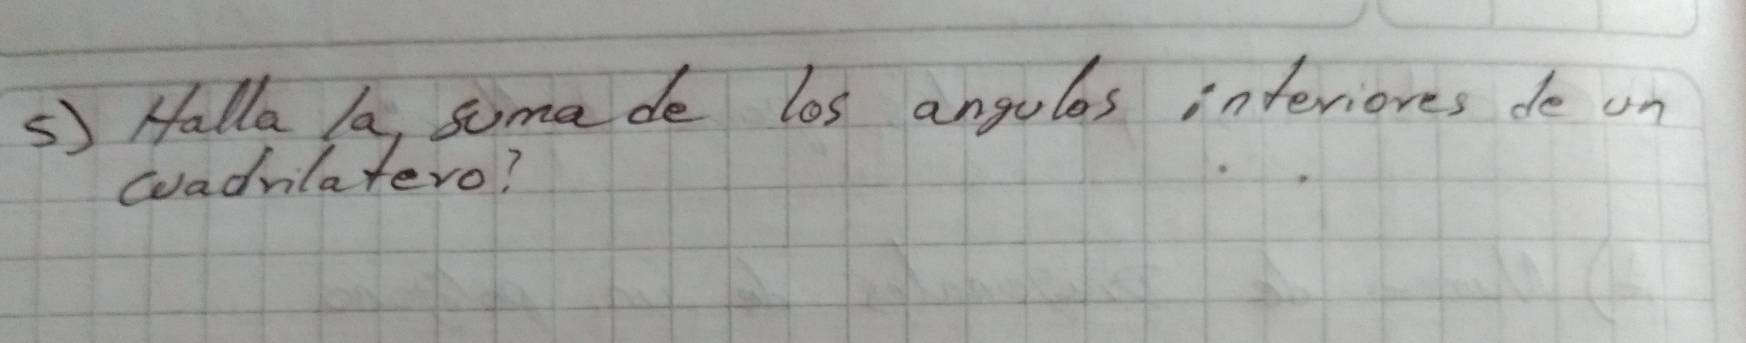 5) Halla la, suma de los angulos interiores de un
cuadrilatero?